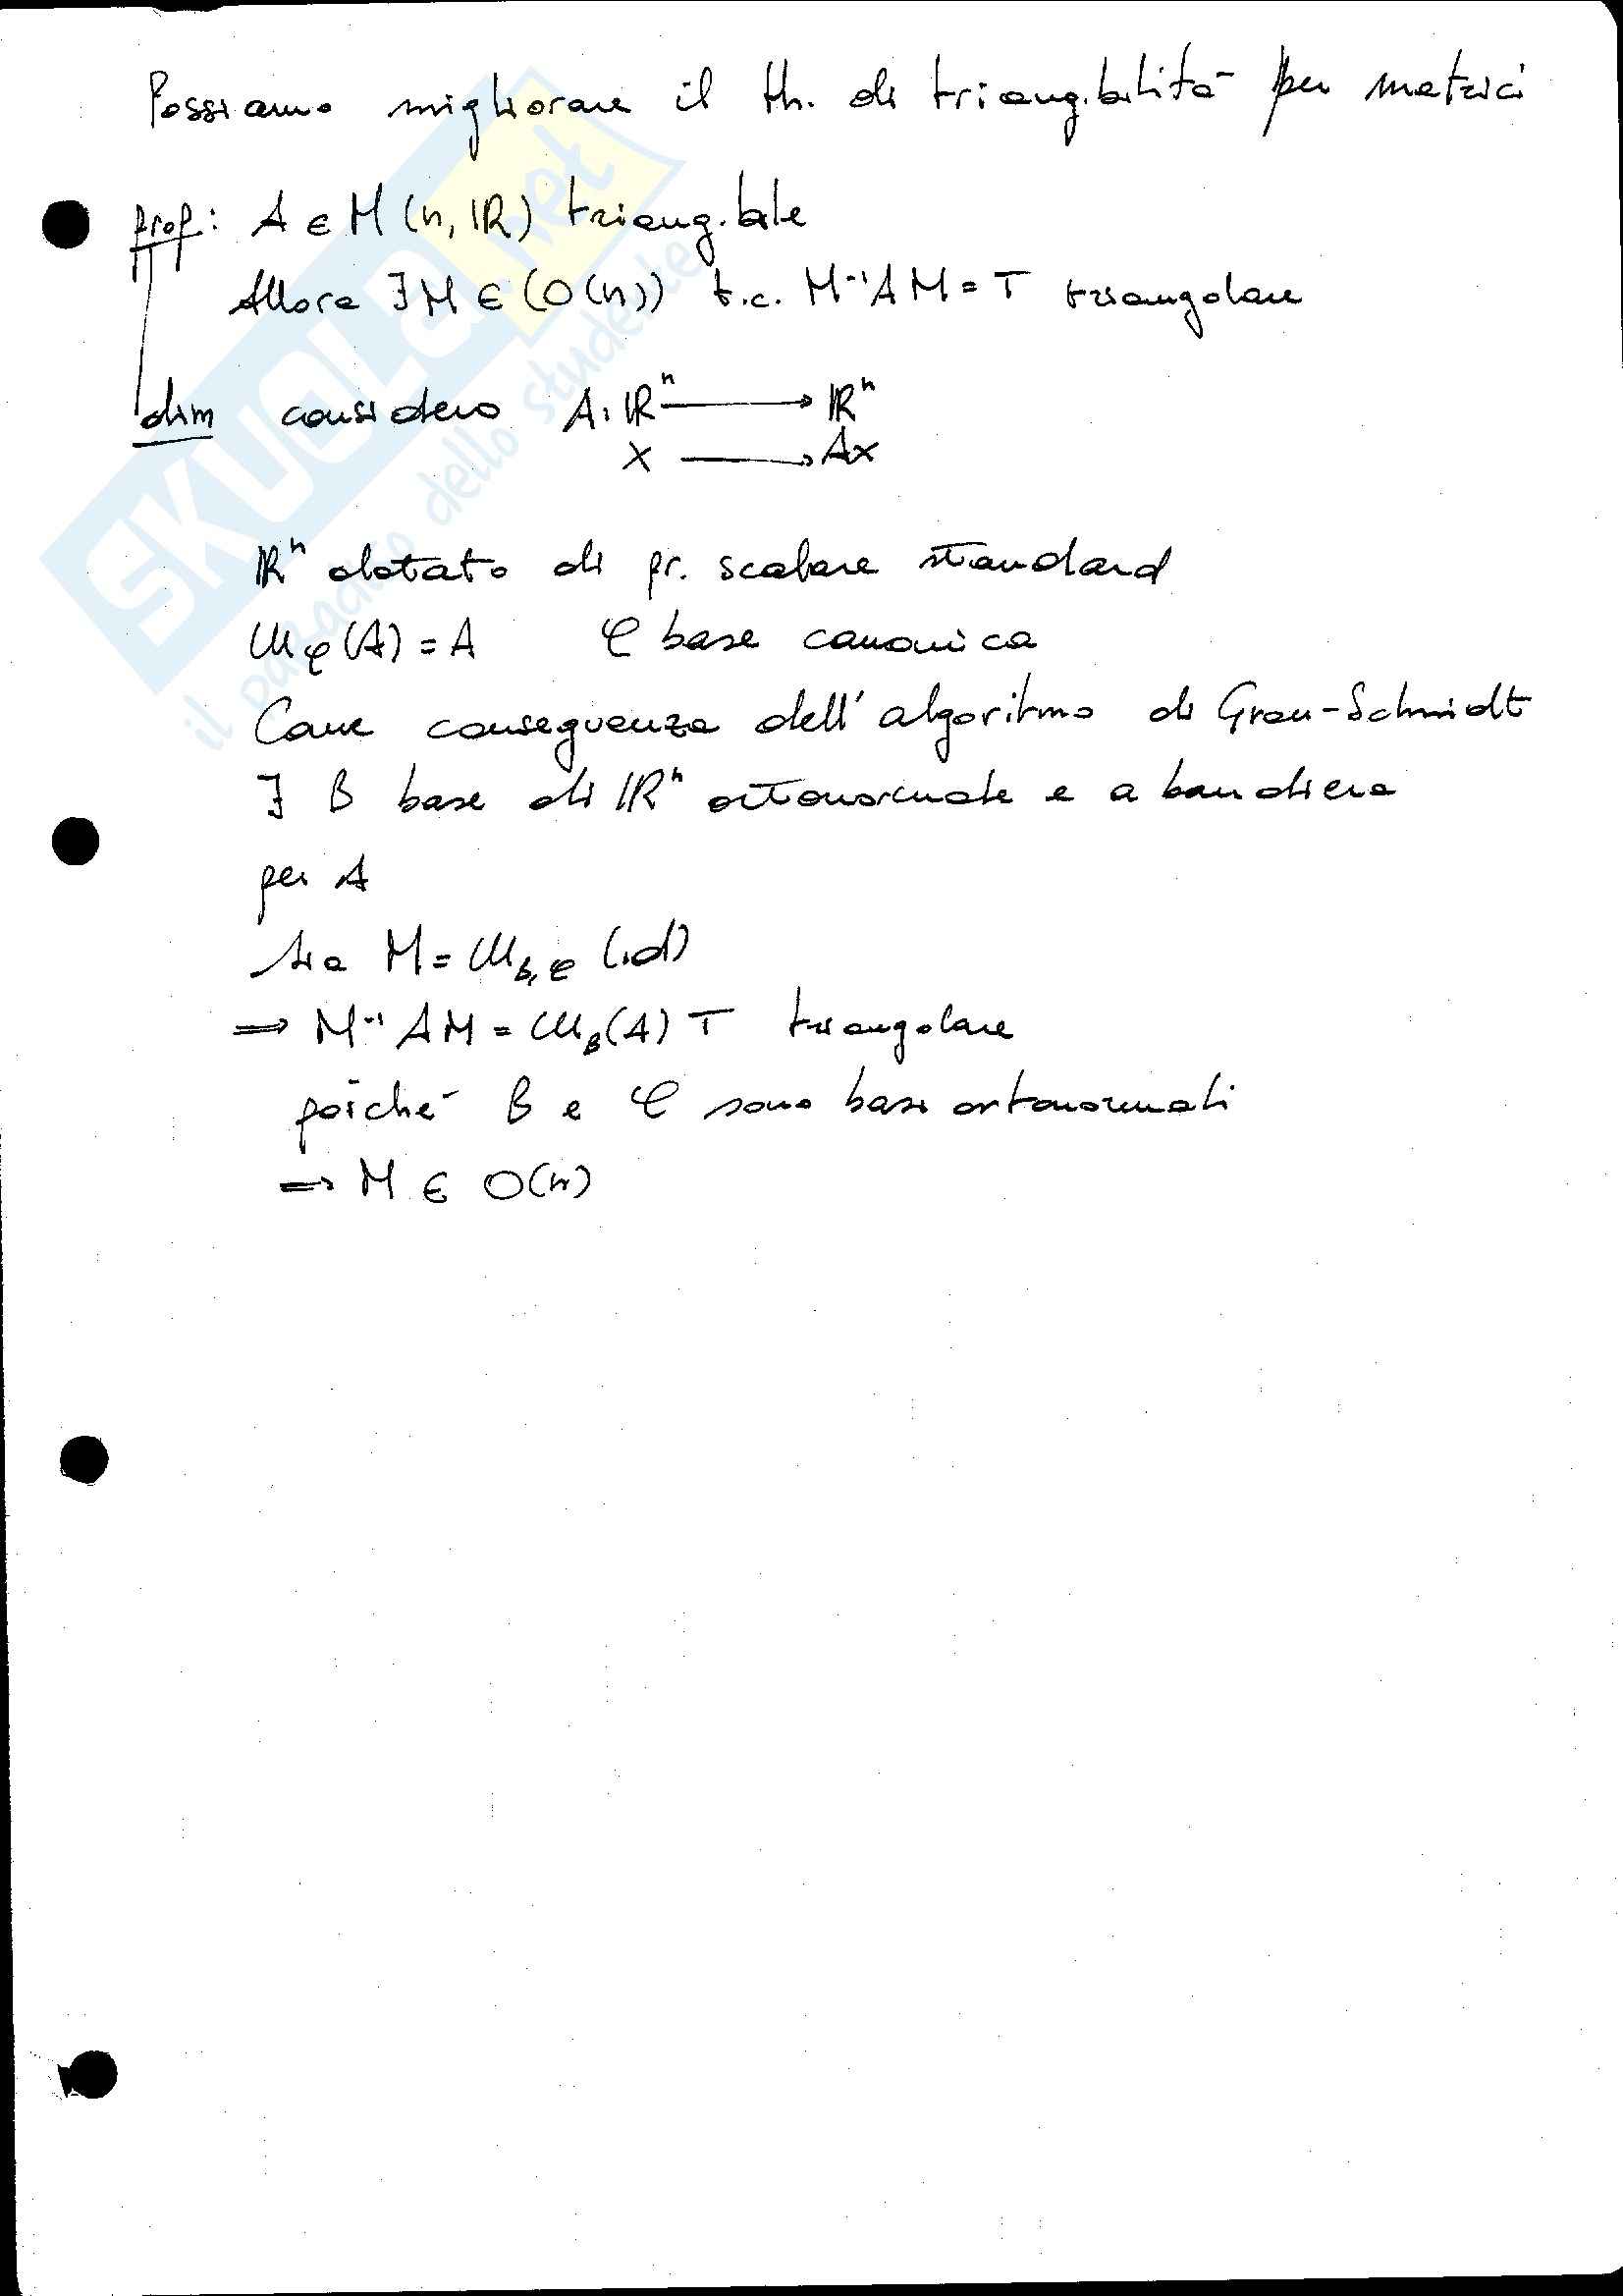 Possiamo migliorare il th. di triangibilità per matrici
prop: A ∈ M(n, ℝ) triangibile
Allora ∃ M ∈ (O(n)) t.c. M⁻¹AM = T triangolare
dim considero A: ℝⁿ → ℝⁿ
x → Ax
ℝⁿ dotato di pr. scalare standard
𝔐_𝒞(A) = A 𝒞 base canonica
Come conseguenza dell'algoritmo di Gram-Schmidt
∃ B base di ℝⁿ ortonormale e a bandiera
per A
sia M = 𝔐_B,𝒞 (id)
⇒ M⁻¹AM = 𝔐_B(A) T triangolare
poiché B e 𝒞 sono basi ortonormali
⇒ M ∈ O(n)
SKUOLA.net
il paradiso dello studente